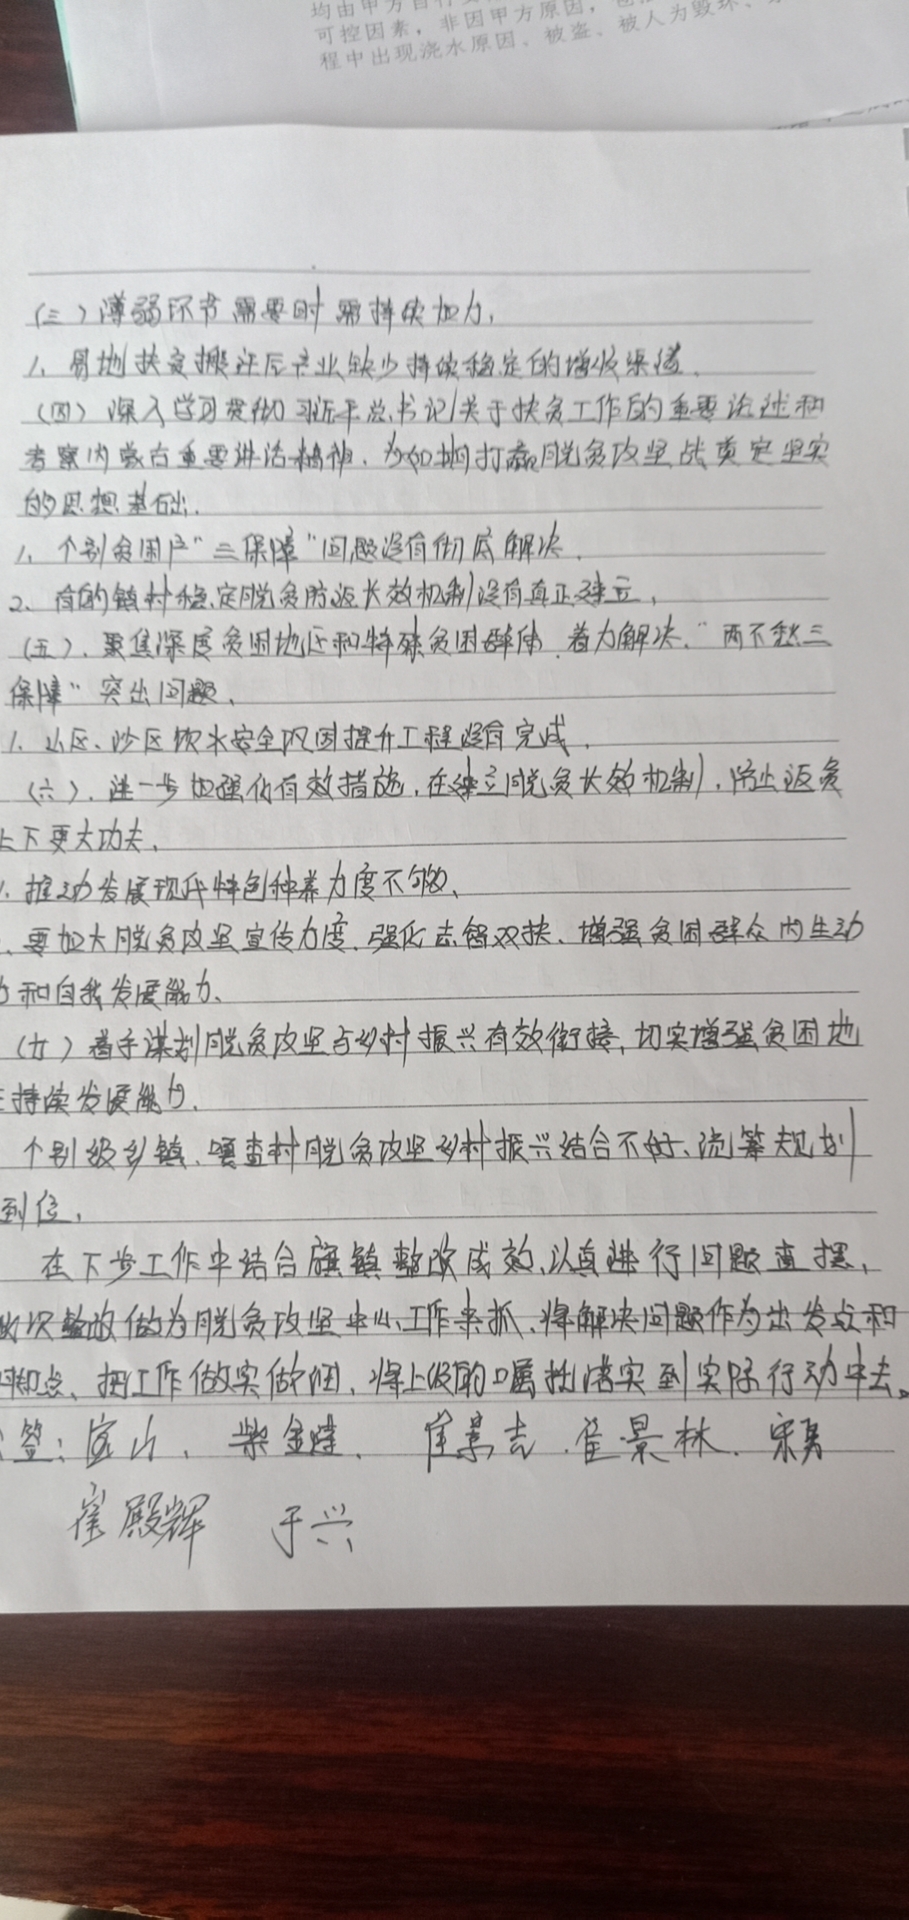 均由甲方自行
可控因素，非因甲方原因，
程中出现浇水原因、被盗、被人为毁坏、
(三)薄弱环节需要时需持续加力，
1、易地扶贫搬迁后产业缺少持续稳定的增收渠道、
(四)深入学习贯彻习近平总书记关于扶贫工作的重要论述和
考察内蒙古重要讲话精神、为如期打赢脱贫攻坚战奠定坚实
的思想基础、
1、个别贫困户"三保障"问题没有彻底解决、
2、有的镇村稳定脱贫防返长效机制没有真正建立，
(五)、聚焦深度贫困地区和特殊贫困群体、着力解决、"两不愁三
保障"突出问题、
1、山区、沙区饮水安全巩固提升工程没有完成、
(六)、进一步加强化有效措施，在建立脱贫长效机制，防止返贫
上下更大功夫、
1、推动发展现代特色种养力度不够、
、要加大脱贫攻坚宣传力度、强化志智双扶、增强贫困群众内生动
力和自我发展能力、
(九)着手谋划脱贫攻坚与乡村振兴有效衔接，切实增强贫困地
区持续发展能力、
个别级乡镇、嘎查村脱贫攻坚乡村振兴结合不好、统筹规划
到位，
在下步工作中结合旗镇整改成效、认真进行问题查摆，
此次整改做为脱贫攻坚中心工作来抓、将解决问题作为出发点和
脚点、把工作做实做细、将上级的嘱托落实到实际行动中去。
签：宝山、柴金 崔景志、崔景林、宋勇
崔殿辉 于兴